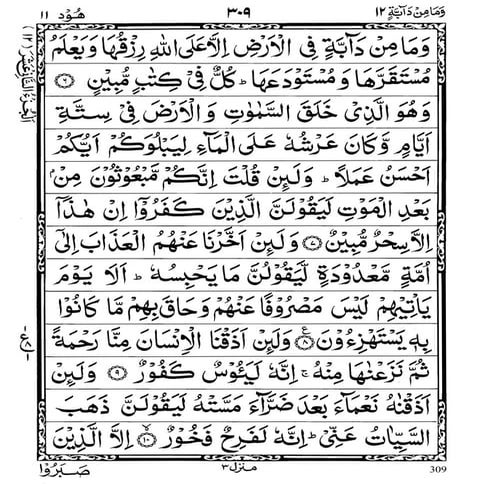 وَمَا مِنْ دَآبَّةٍ ١٢ ٣٠٩ هُوْد ١١
وَمَا مِنْ دَآبَّةٍ فِى الْاَرْضِ اِلَّا عَلَى اللّٰهِ رِزْقُهَا وَيَعْلَمُ
مُسْتَقَرَّهَا وَمُسْتَوْدَعَهَا ؕ كُلٌّ فِىْ كِتٰبٍ مُّبِيْنٍ ۝٦
وَهُوَ الَّذِىْ خَلَقَ السَّمٰوٰتِ وَالْاَرْضَ فِىْ سِتَّةِ
اَيَّامٍ وَّكَانَ عَرْشُهٗ عَلَى الْمَآءِ لِيَبْلُوَكُمْ اَيُّكُمْ
اَحْسَنُ عَمَلًا ؕ وَلَئِنْ قُلْتَ اِنَّكُمْ مَّبْعُوْثُوْنَ مِنْۢ
بَعْدِ الْمَوْتِ لَيَقُوْلَنَّ الَّذِيْنَ كَفَرُوْۤا اِنْ هٰذَاۤ
اِلَّا سِحْرٌ مُّبِيْنٌ ۝٧ وَلَئِنْ اَخَّرْنَا عَنْهُمُ الْعَذَابَ اِلٰٓى
اُمَّةٍ مَّعْدُوْدَةٍ لَّيَقُوْلُنَّ مَا يَحْبِسُهٗ ؕ اَلَا يَوْمَ
يَاْتِيْهِمْ لَيْسَ مَصْرُوْفًا عَنْهُمْ وَحَاقَ بِهِمْ مَّا كَانُوْا
بِهٖ يَسْتَهْزِءُوْنَ ۝٨ ع وَلَئِنْ اَذَقْنَا الْاِنْسَانَ مِنَّا رَحْمَةً
ثُمَّ نَزَعْنٰهَا مِنْهُ ۚ اِنَّهٗ لَيَـُٔوْسٌ كَفُوْرٌ ۝٩ وَلَئِنْ
اَذَقْنٰهُ نَعْمَآءَ بَعْدَ ضَرَّآءَ مَسَّتْهُ لَيَقُوْلَنَّ ذَهَبَ
السَّيِّاٰتُ عَنِّىْ ؕ اِنَّهٗ لَفَرِحٌ فَخُوْرٌ ۝١٠ اِلَّا الَّذِيْنَ
309 منزل ٣ صَبَرُوْا
الجزء الثاني عشر (١٢)